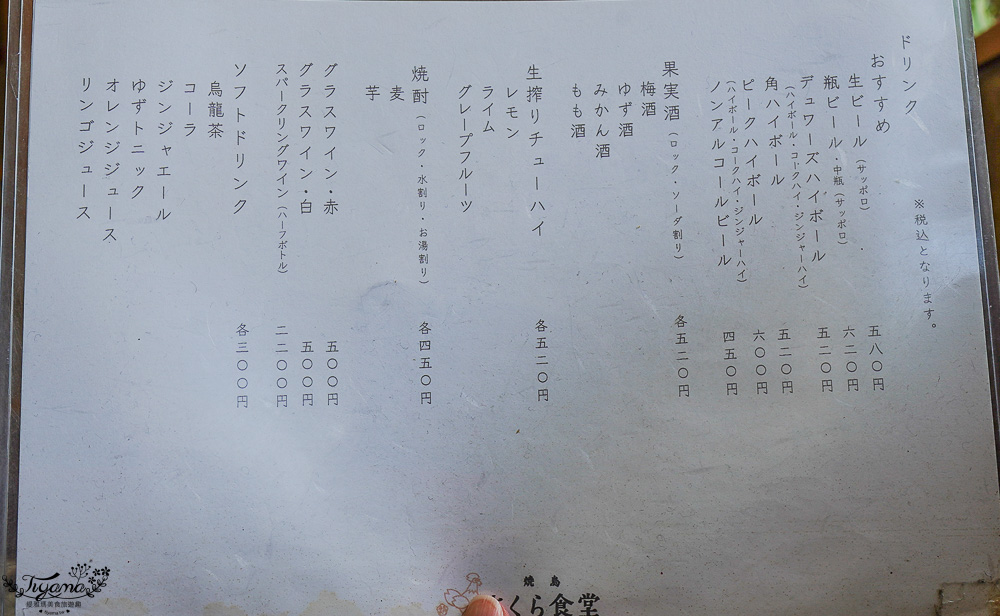 ドリンク
※税込となります。
おすすめ
生ビール(サッポロ) 五八〇円
瓶ビール・中瓶(サッポロ) 六二〇円
デュワーズハイボール 五二〇円
(ハイボール・コークハイ・ジンジャーハイ)
角ハイボール 五二〇円
ピークハイボール 六〇〇円
(ハイボール・コークハイ・ジンジャーハイ)
ノンアルコールビール 四五〇円
果実酒(ロック・ソーダ割り) 各五二〇円
梅酒
ゆず酒
みかん酒
もも酒
生搾りチューハイ 各五二〇円
レモン
ライム
グレープフルーツ
焼酎(ロック・水割り・お湯割り) 各四五〇円
麦
芋
グラスワイン・赤 五〇〇円
グラスワイン・白 五〇〇円
スパークリングワイン(ハーフボトル) 二二〇〇円
ソフトドリンク 各三〇〇円
烏龍茶
コーラ
ジンジャエール
ゆずトニック
オレンジジュース
リンゴジュース
焼鳥
くら食堂
Tiyana
緹雅瑪美食旅遊趣